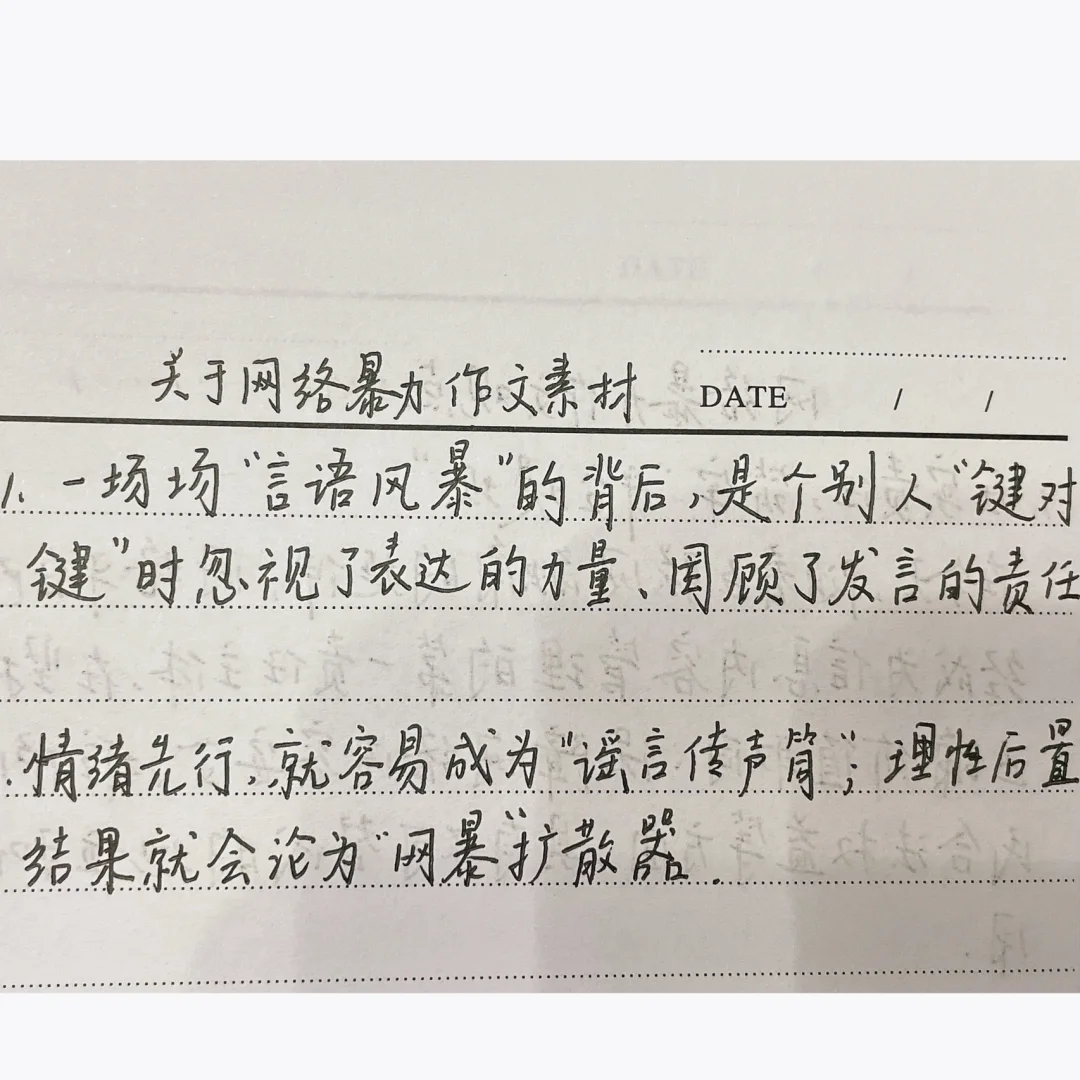 关于网络暴力作文素材 DATE / /
1. 一场场“言语风暴”的背后,是个别人“键对
键”时忽视了表达的力量、罔顾了发言的责任
.情绪先行,就容易成为“谣言传声筒”;理性后置
结果就会沦为“网暴”扩散器.